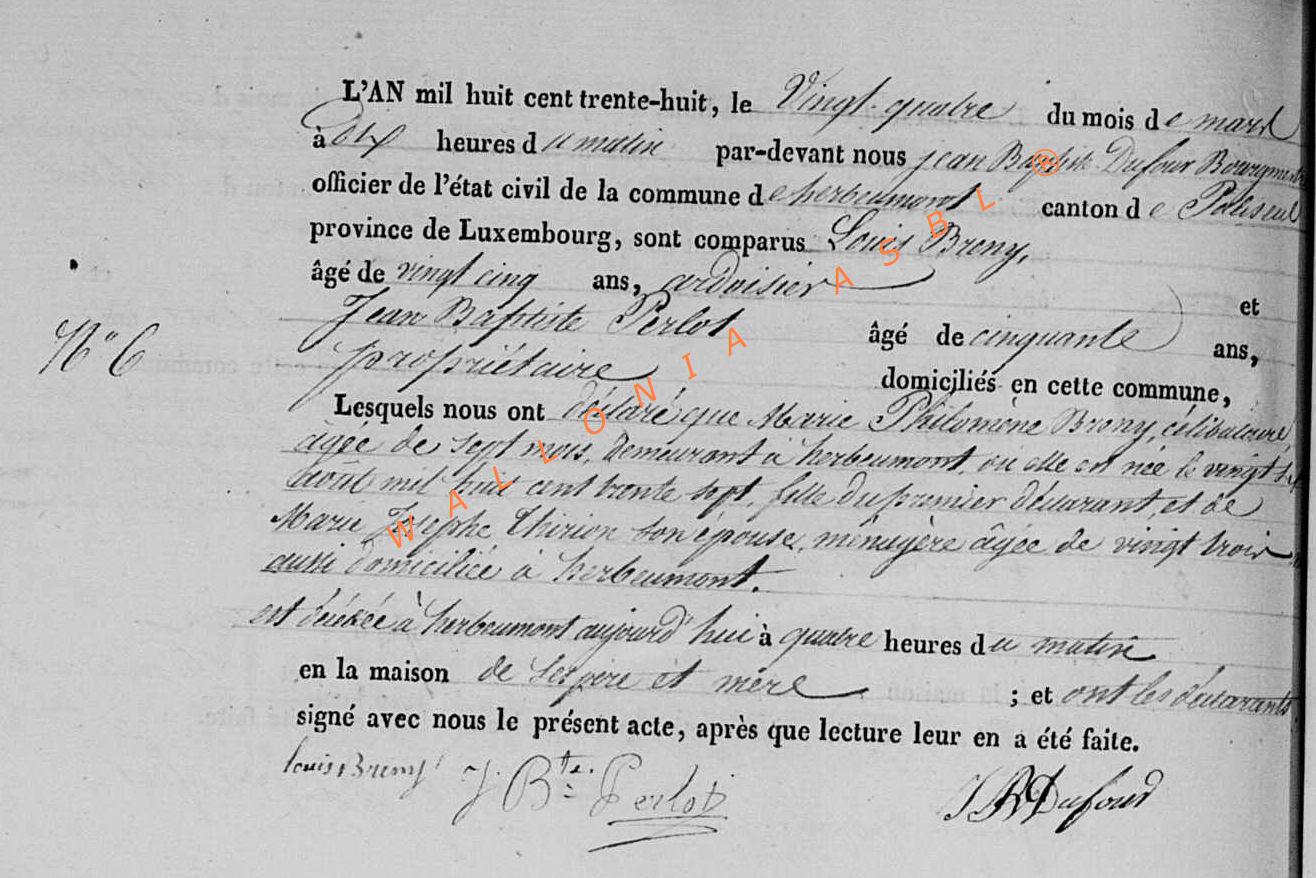 L'AN mil huit cent trente-huit, le Vingt-quatre du mois de mars
à Dix heures du matin par-devant nous jean Baptiste Dufour Bourgmestre
officier de l'état civil de la commune de herbeumont canton de Paliseul
province de Luxembourg, sont comparus Louis Brony,
âgé de vingt cinq ans, ardoisier et
Jean Baptiste Perlot âgé de cinquante ans,
N° 6
propriétaire domiciliés en cette commune,
Lesquels nous ont déclaré que Marie Philomène Brony, célibataire,
âgée de sept mois, demeurant à herbeumont, ou elle est née le vingt
août mil huit cent trente sept, fille du premier déclarant, et de
Marie Josephe Thirion son épouse, ménagère âgée de vingt trois
aussi domiciliée à herbeumont.
est décédée à herbeumont aujourd'hui à quatre heures du matin
en la maison de ses père et mère ; et ont les déclarants
signé avec nous le présent acte, après que lecture leur en a été faite.
louis Brony J Bte. Perlot JB Dufour
WALLONIA ASBL ®